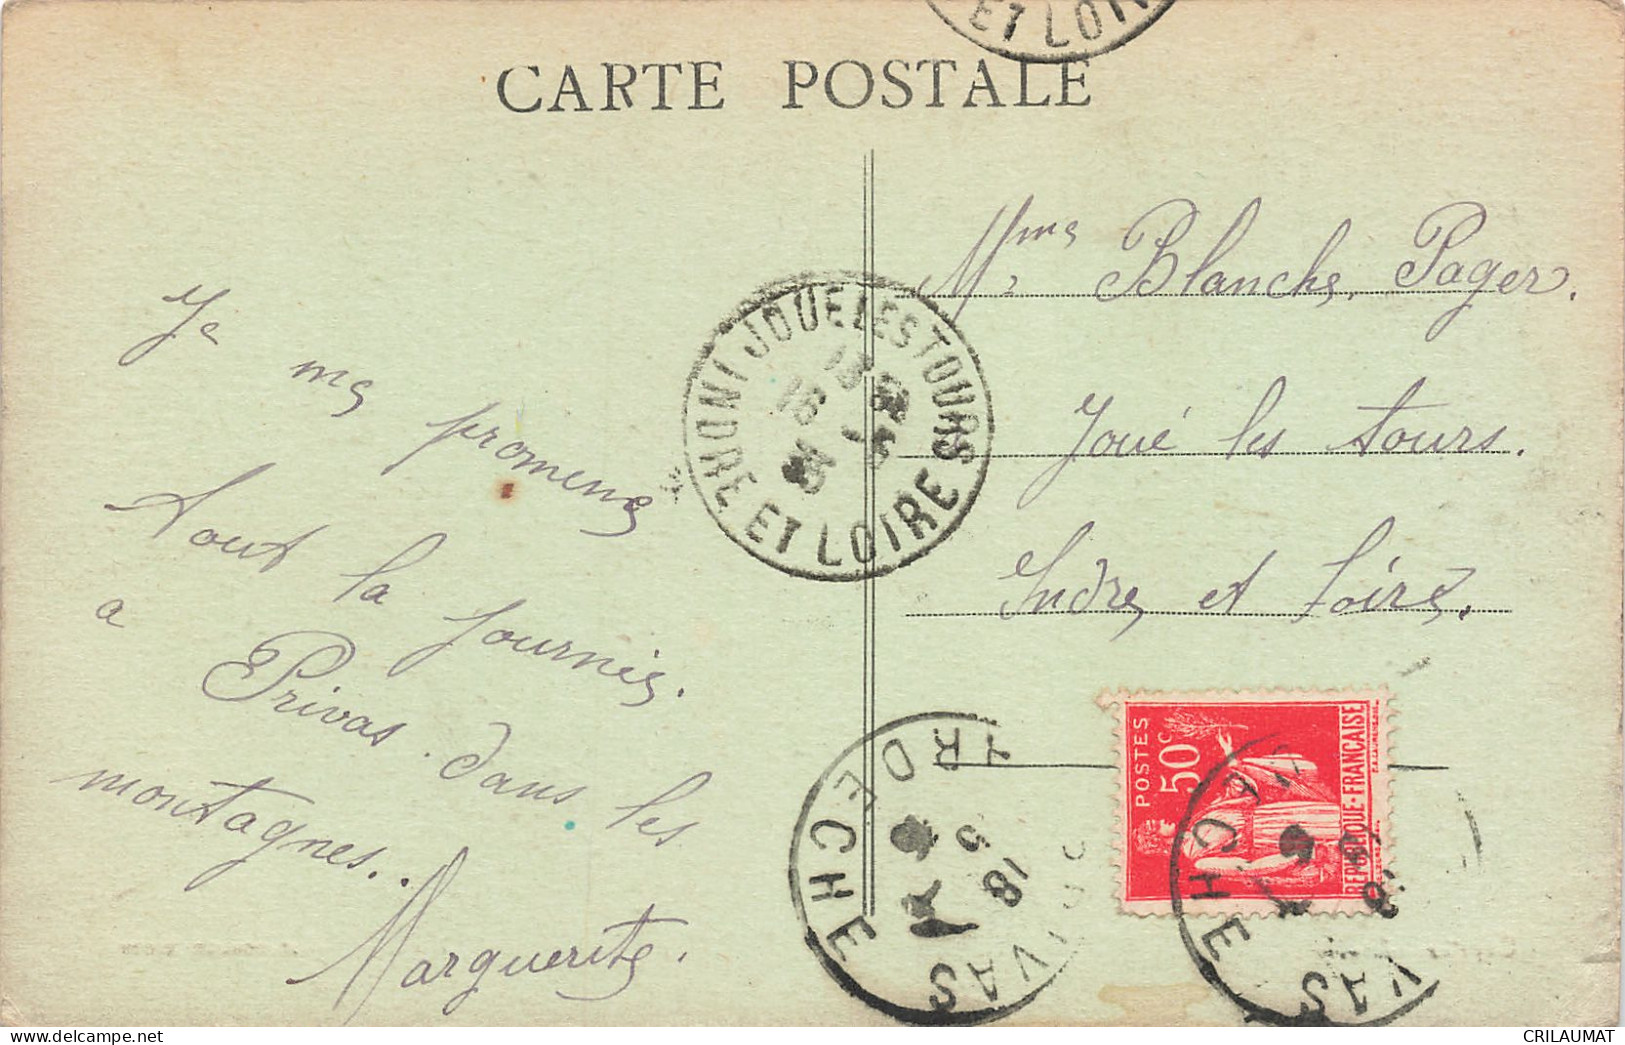 ET LOIR
CARTE POSTALE
Je
me promene
tout la journée.
a Privas dans les
montagnes..
Marguerite.
Mme Blanche Pager.
Joué les tours.
Indre et Loire.
JOUE LES TOURS
INDRE ET LOIRE
POSTES
50c
REPUBLIQUE-FRANÇAISE
ARDECHE
VAS
18
5
CHE
VAS
CRILAUMAT